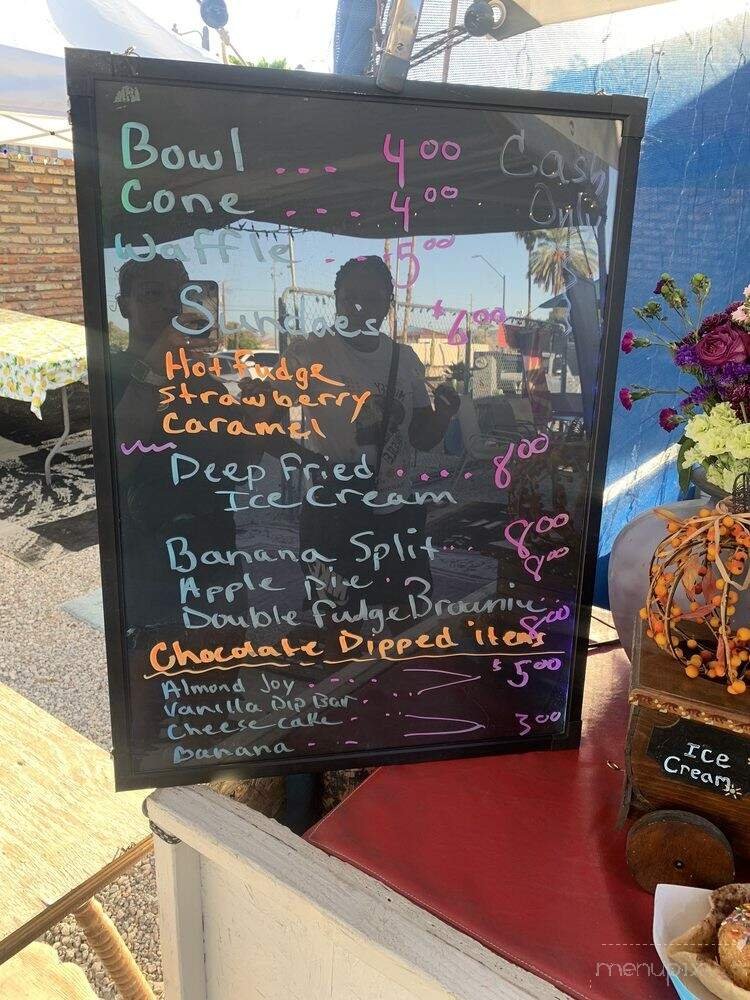 Bowl .... 4.00
Cone .... 4.00
Waffle ... 5.00
Cash
Only
Sundae's $6.00
Hot Fudge
Strawberry
Caramel
Deep Fried .... 8.00
Ice Cream
Banana Split... 8.00
Apple Pie . 8.00
Double Fudge Brownie.. 8.00
Chocolate Dipped items
Almond Joy . . . . $5.00
Vanilla Dip Bar . . .
Cheese cake . . 3.00
Banana . . .
Ice
Cream
menupix